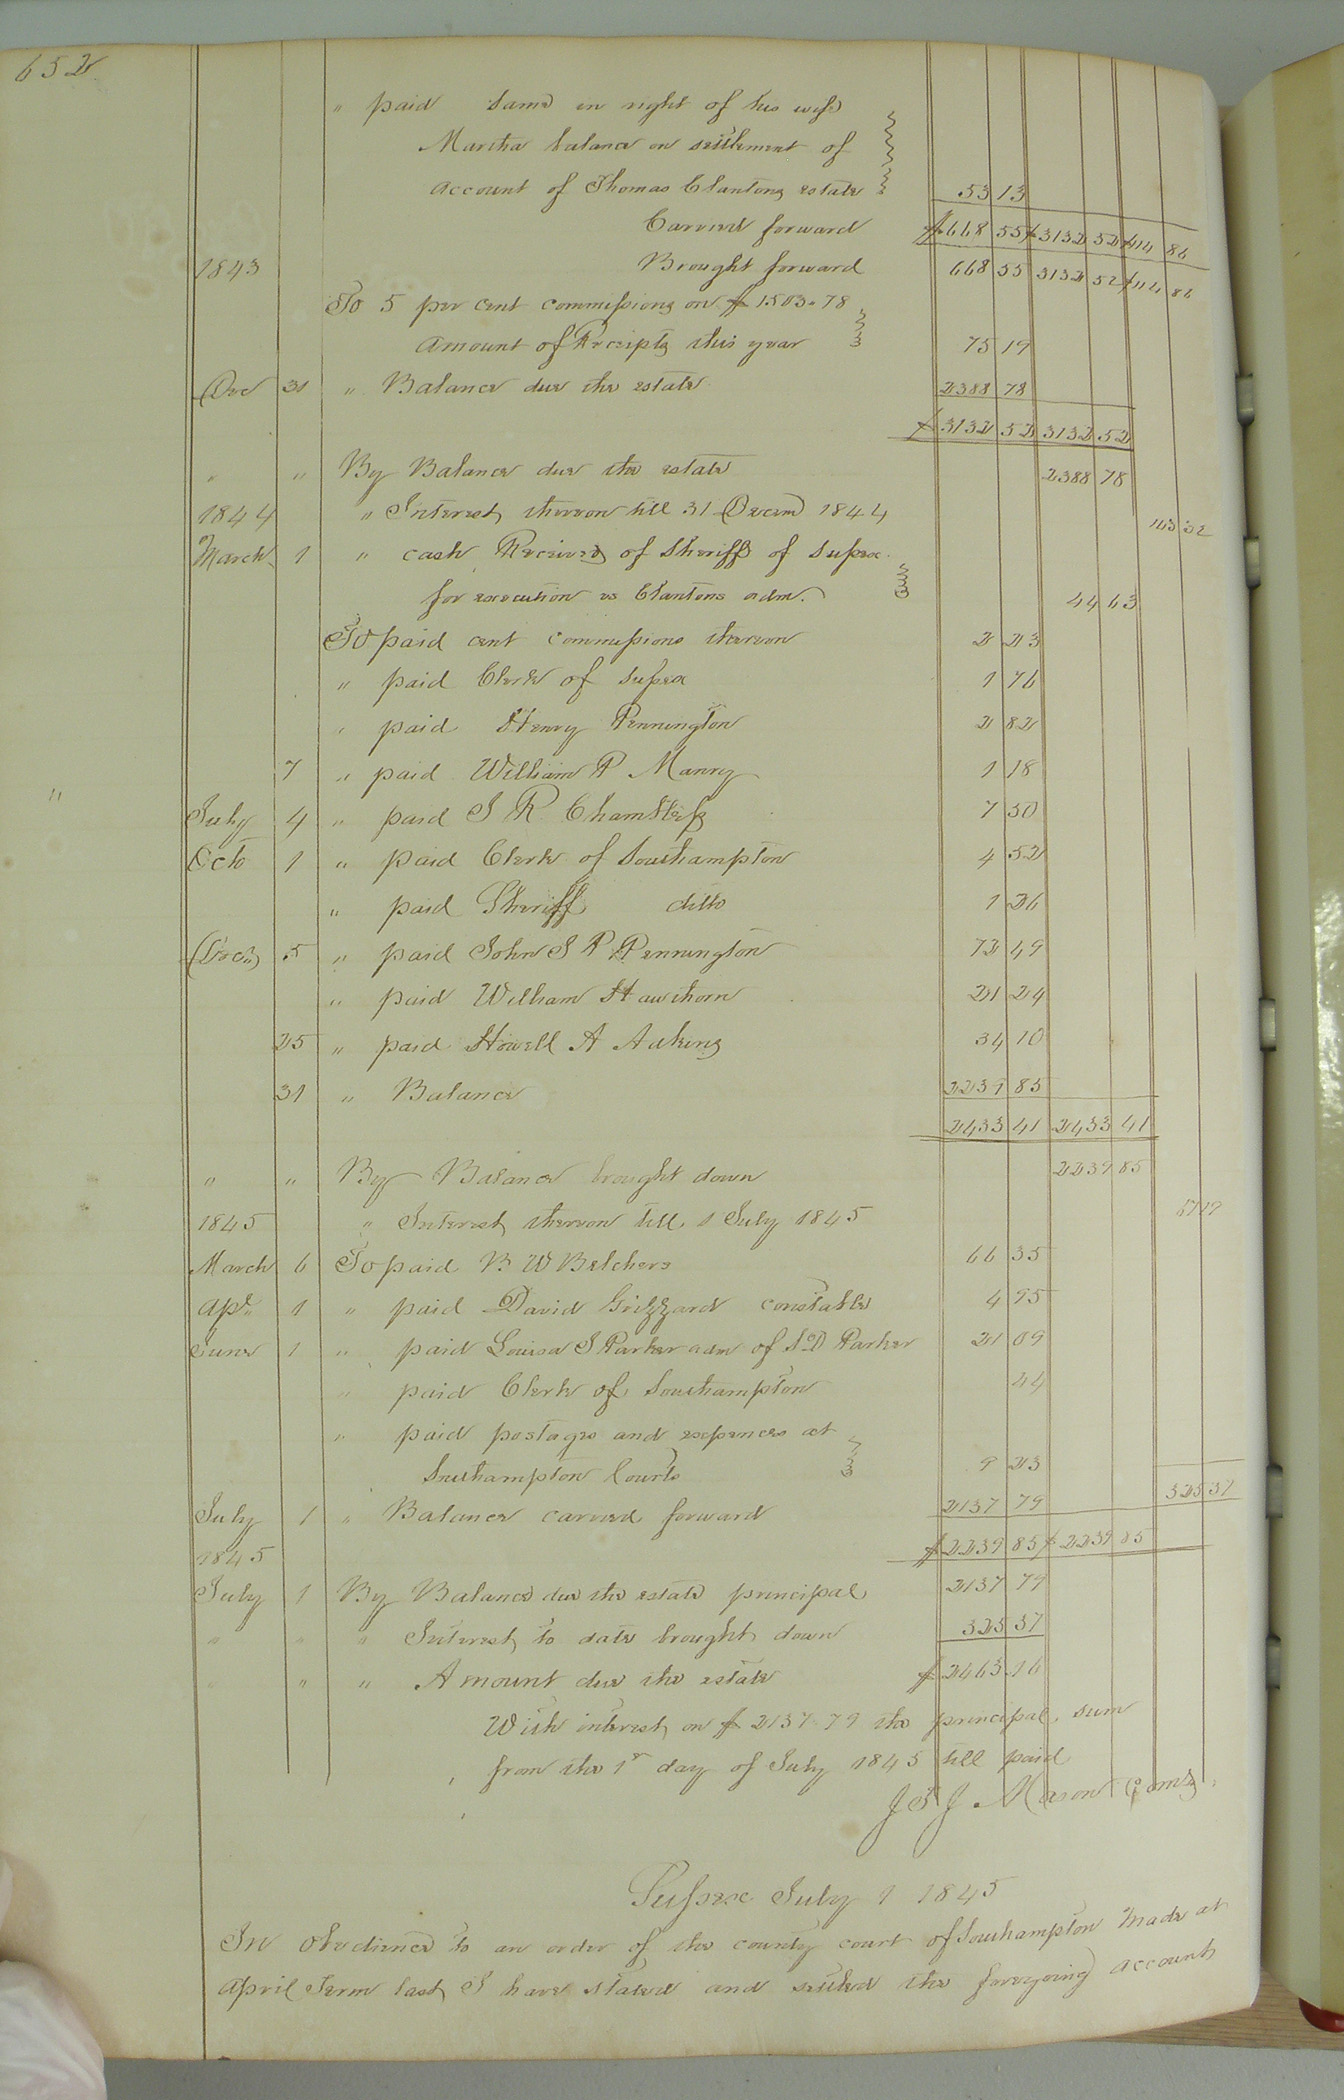 652
" paid same in right of his wife
Martha balance on settlement of
account of Thomas Clantons estate 53 13
Carried forward $668 55 $3132 52 $114 86
1843 Brought forward 668 55 3132 52 $114 86
To 5 per cent commissions on $1503.78
amount of Receipts this year 75 19
Dec 31 " Balance due the estate 2388 78
$3132 52 3132 52
" " By Balance due the estate 2388 78
1844 " Interest thereon till 31 Decem 1844 143 32
March 1 " cash Received of Sheriff of Sussex
for execution vs Clantons adm. 44 63
To paid cent commissions thereon 2 23
" paid Clerk of Sussex 1 76
" paid Henry Pennington 2 82
7 " paid William P Manry 1 18
"
July 4 " paid S R Chambless 7 50
Octo 1 " paid Clerk of Southampton 4 52
" paid Sheriff ditto 1 26
Decr 5 " paid John S P Pennington 72 49
" paid William Hawthorn 21 24
25 " paid Howell A Adkins 34 10
31 " Balance 2239 85
2433 41 2433 41
" " By Balance brought down 2239 85
1845 " Interest thereon till 1 July 1845 67 19
March 6 To paid B W Belchers 66 35
Apl 1 " paid David Grizzard constable 4 95
June 1 " paid Louisa S Parker adm of S D Parker 21 09
" paid Clerk of Southampton 44
" paid postages and expences at
Southampton Courts 9 23
July 1 " Balance carried forward 2137 79 325 37
1845 $2239 85 $2239 85
July 1 By Balance due the estate principal 2137 79
" " " Interest to date brought down 325 37
" " " Amount due the estate $2463 16
With interest on $2137 79 the principal sum
from the 1st day of July 1845 till paid
J S J Mason Comr
Sussex July 1 1845
In obedience to an order of the county court of Southampton made at
April Term last I have stated and settled the foregoing account